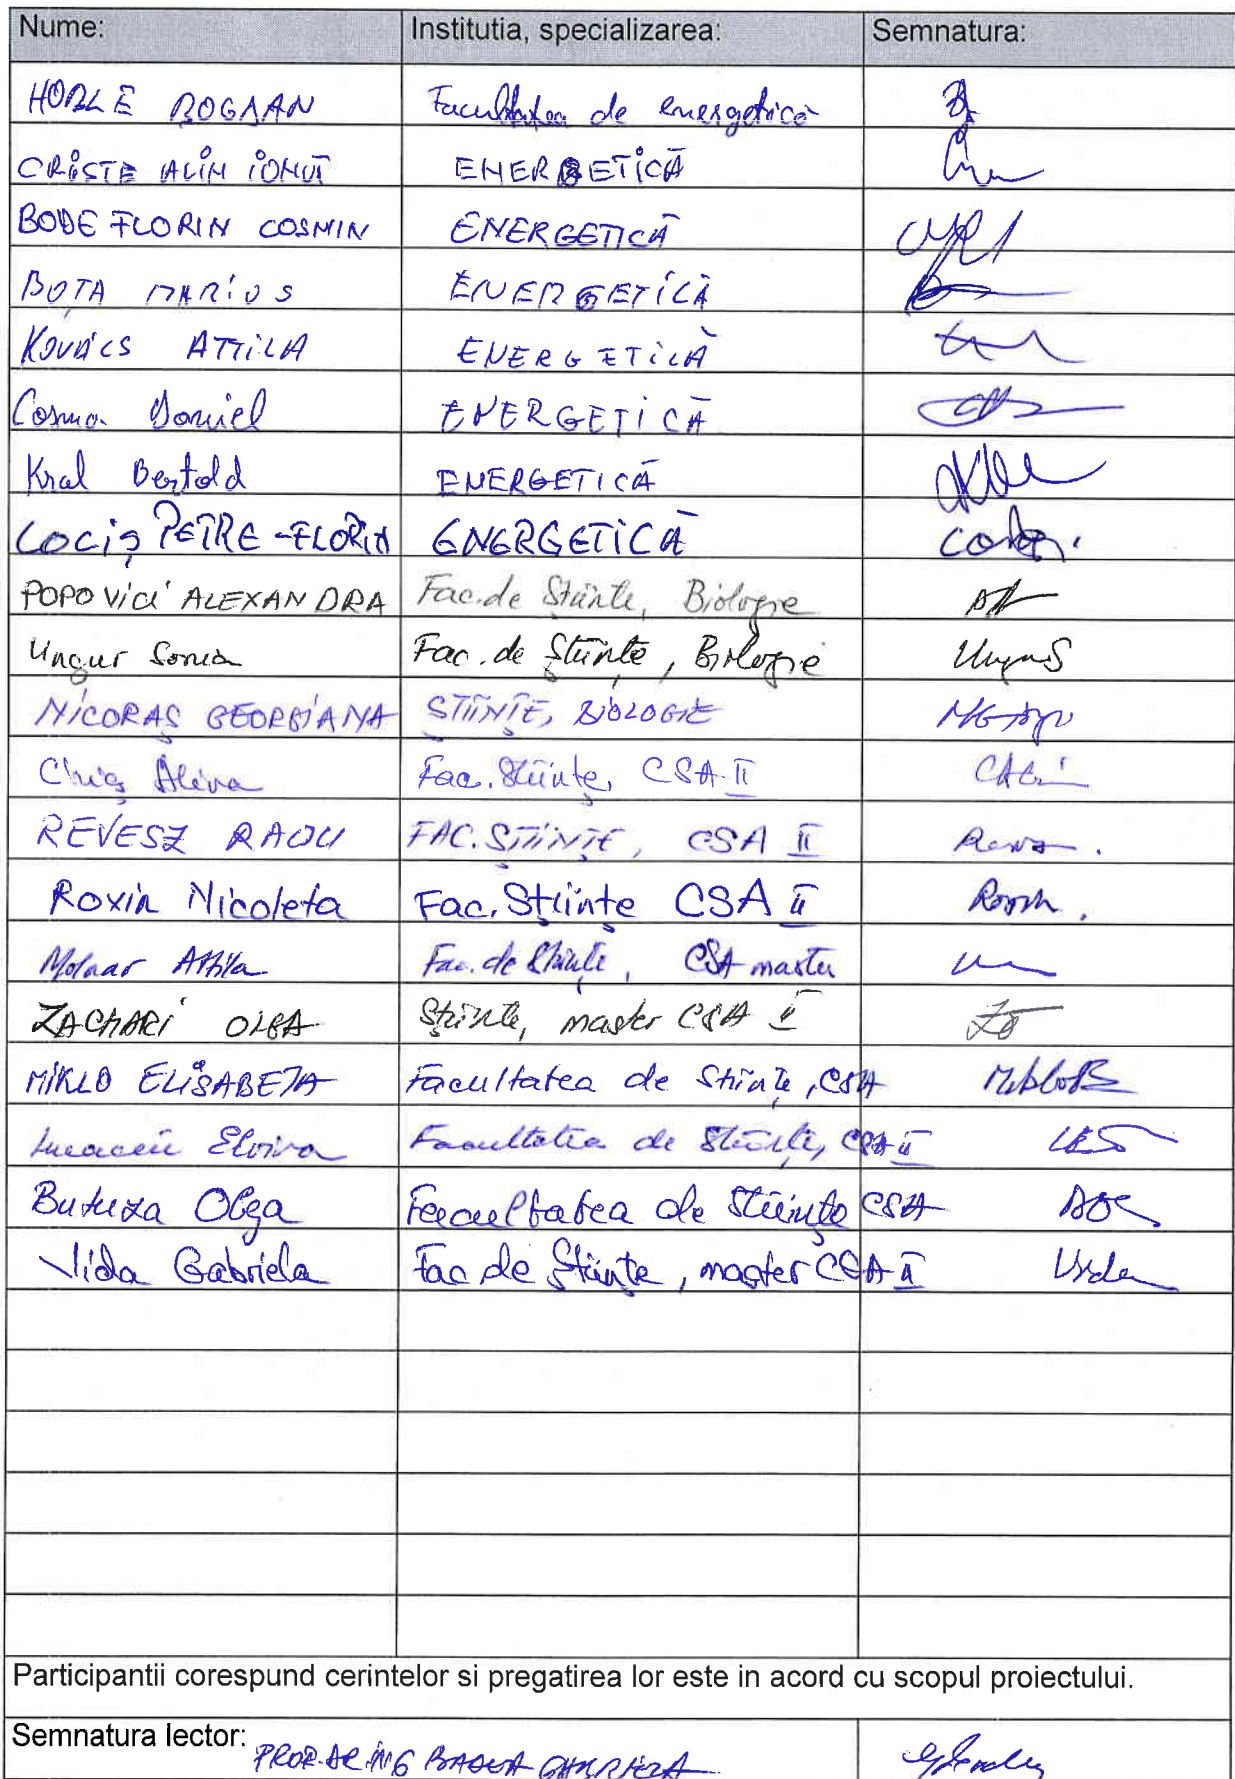 Nume: Institutia, specializarea: Semnatura:
HORLE BOGDAN Facultatea de energetică
CRISTE ALIN IONUȚ ENERGETICĂ
BODE FLORIN COSMIN ENERGETICĂ
BOTA MARIUS ENERGETICĂ
KOVÁCS ATTILA ENERGETICĂ
Cosma Daniel ENERGETICĂ
Kral Bertold ENERGETICĂ
COCIȘ PETRE-FLORIN ENERGETICĂ
POPOVICI ALEXANDRA Fac. de Științe, Biologie
Ungur Sonia Fac. de Științe, Biologie
NICORAȘ GEORGIANA ȘTIINȚE, BIOLOGIE
Chiș Alina Fac. Științe, CSA II
REVESZ RADU FAC. ȘTIINȚE, CSA II
Roxin Nicoleta Fac. Științe CSA II
Molnar Attila Fac. de Științe, CSA master
ZACHARI OLGA Științe, master CSA II
MIKLO ELISABETA Facultatea de Științe, CSA
Lucaciu Elvira Facultatea de Științe, CSA II
Butuza Olga Facultatea de Științe CSA
Vida Gabriela Fac de Științe, master CSA II Vida
Participantii corespund cerintelor si pregatirea lor este in acord cu scopul proiectului.
Semnatura lector: PROF. DR. ING